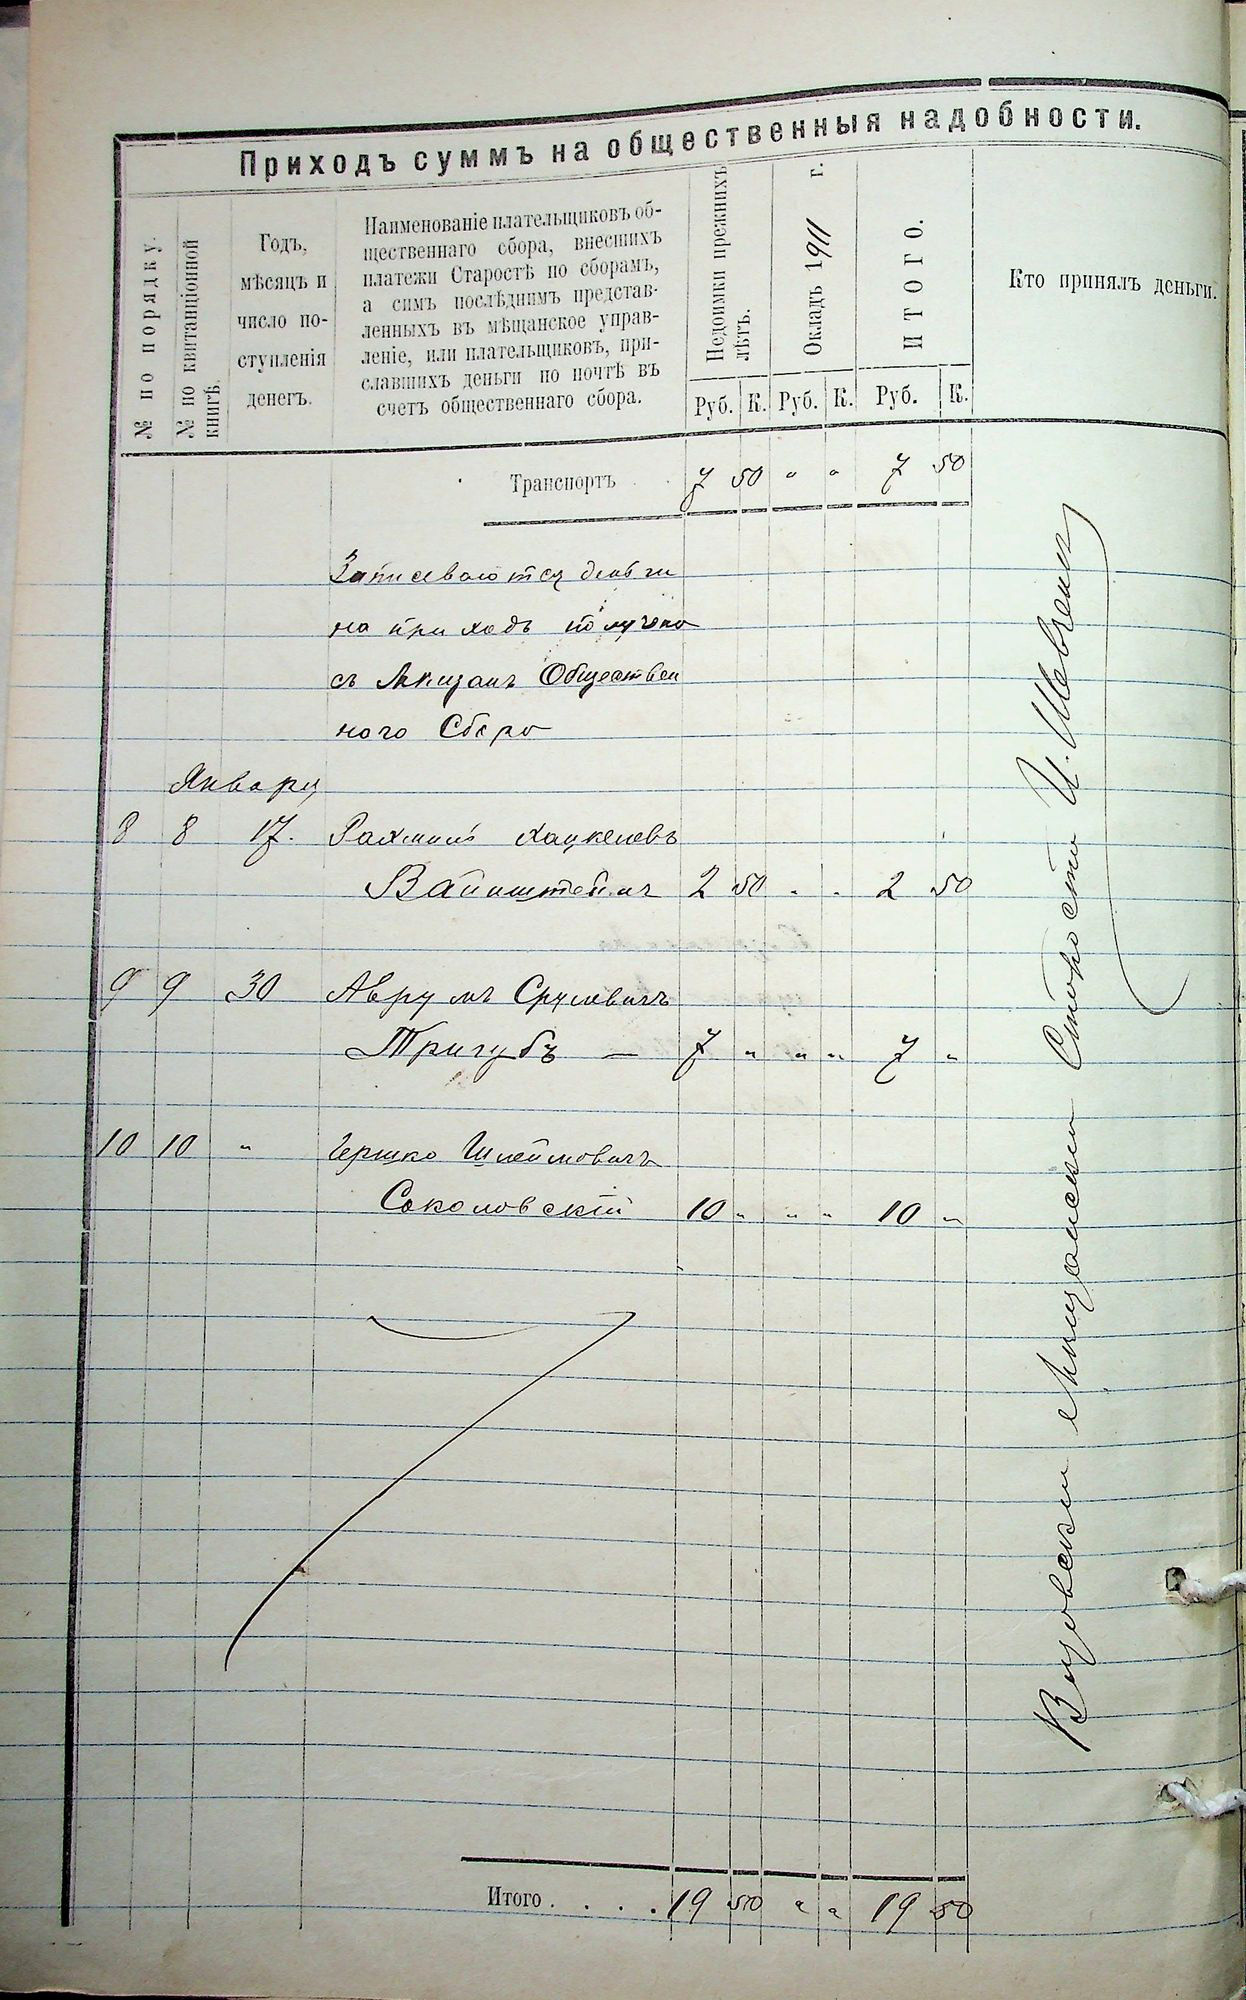 Приходъ суммъ на общественныя надобности.
№ по порядку.
№ по квитанціонной
книгѣ.
Годъ,
мѣсяцъ и
число по-
ступленія
денегъ.
Наименованіе плательщиковъ об-
щественнаго сбора, внесшихъ
платежи Старостѣ по сборамъ,
а симъ послѣднимъ представ-
ленныхъ въ мѣщанское управ-
леніе, или плательщиковъ, при-
славшихъ деньги по почтѣ въ
счетъ общественнаго сбора.
Недоимки прежнихъ
лѣтъ.
Окладъ 1911 г.
ИТОГО.
Кто принялъ деньги.
Руб. К. Руб. К. Руб. К.
Транспортъ 7 50 " " 7 50
Записеваются деньги
на приходъ получено
съ Мищанъ Обществен
ного Сбора
Января
8 8 17. Рахмиль Хацкелевъ
Вайнштейнъ 2 50 " " 2 50
9 9 30 Аврумъ Срулевичъ
Тригубъ — 7 " " " 7 "
10 10 " Гершко Шлеймовичъ
Соколовскій 10 " " " 10 "
Мищански Старосто И. Шевченко
Итого . . . . 19 50 " " 19 50